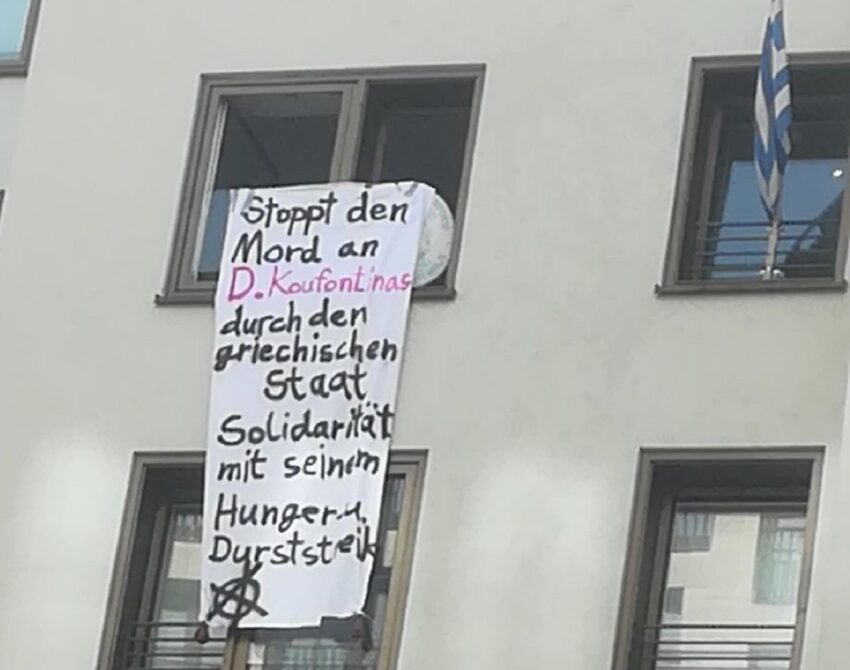 Stoppt den
Mord an
D. Koufontinas
durch den
griechischen
Staat
Solidarität
mit seinem
Hunger-u.
Durststreik